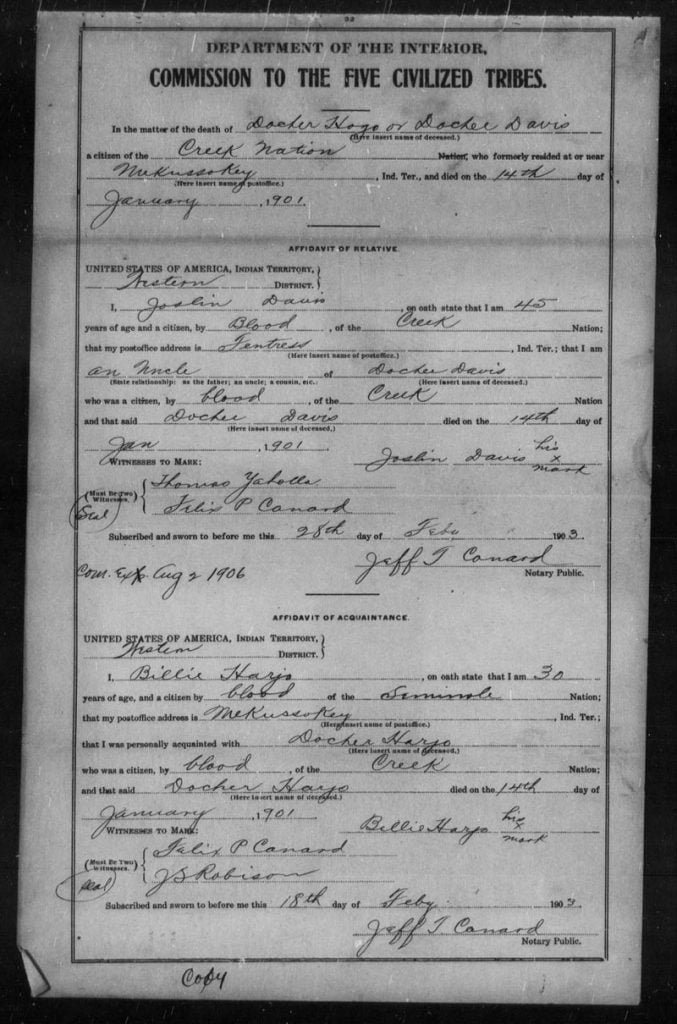 DEPARTMENT OF THE INTERIOR,
COMMISSION TO THE FIVE CIVILIZED TRIBES.
In the matter of the death of Docher Hogo or Docher Davis
(Here insert name of deceased.)
a citizen of the Creek Nation Nation, who formerly resided at or near
Mekussokey, Ind. Ter., and died on the 14th day of
(Here insert name of postoffice.)
January, 1901.
AFFIDAVIT OF RELATIVE.
UNITED STATES OF AMERICA, INDIAN TERRITORY, }
Western DISTRICT. }
I, Joslin Davis, on oath state that I am 45
years of age and a citizen, by Blood, of the Creek Nation;
that my postoffice address is Fentress, Ind. Ter.; that I am
(Here insert name of postoffice.)
an Uncle of Docher Davis
(State relationship: as the father; an uncle; a cousin, etc.) (Here insert name of deceased.)
who was a citizen, by blood, of the Creek Nation
and that said Docher Davis died on the 14th day of
(Here insert name of deceased.)
Jan, 1901
WITNESSES TO MARK: Joslin Davis his x mark
(Must Be Two Witnesses.) { Thomas Yaholla
(Seal) Felix P Canard
Subscribed and sworn to before me this 28th day of Feby 1903.
Jeff T Canard
Com. Ex. Aug 2 1906 Notary Public.
AFFIDAVIT OF ACQUAINTANCE.
UNITED STATES OF AMERICA, INDIAN TERRITORY, }
Western DISTRICT. }
I, Billie Harjo, on oath state that I am 30
years of age, and a citizen by blood of the Siminole Nation;
that my postoffice address is Mekussokey, Ind. Ter.;
(Here insert name of postoffice.)
that I was personally acquainted with Docher Harjo
(Here insert name of deceased.)
who was a citizen, by blood, of the Creek Nation;
and that said Docher Harjo died on the 14th day of
(Here insert name of deceased.)
January, 1901
WITNESSES TO MARK: Billie Harjo his x mark
(Must Be Two Witnesses.) { Felix P Canard
Seal JS Robison
Subscribed and sworn to before me this 18th day of Feby. 1903
Jeff T. Canard
Notary Public.
Copy